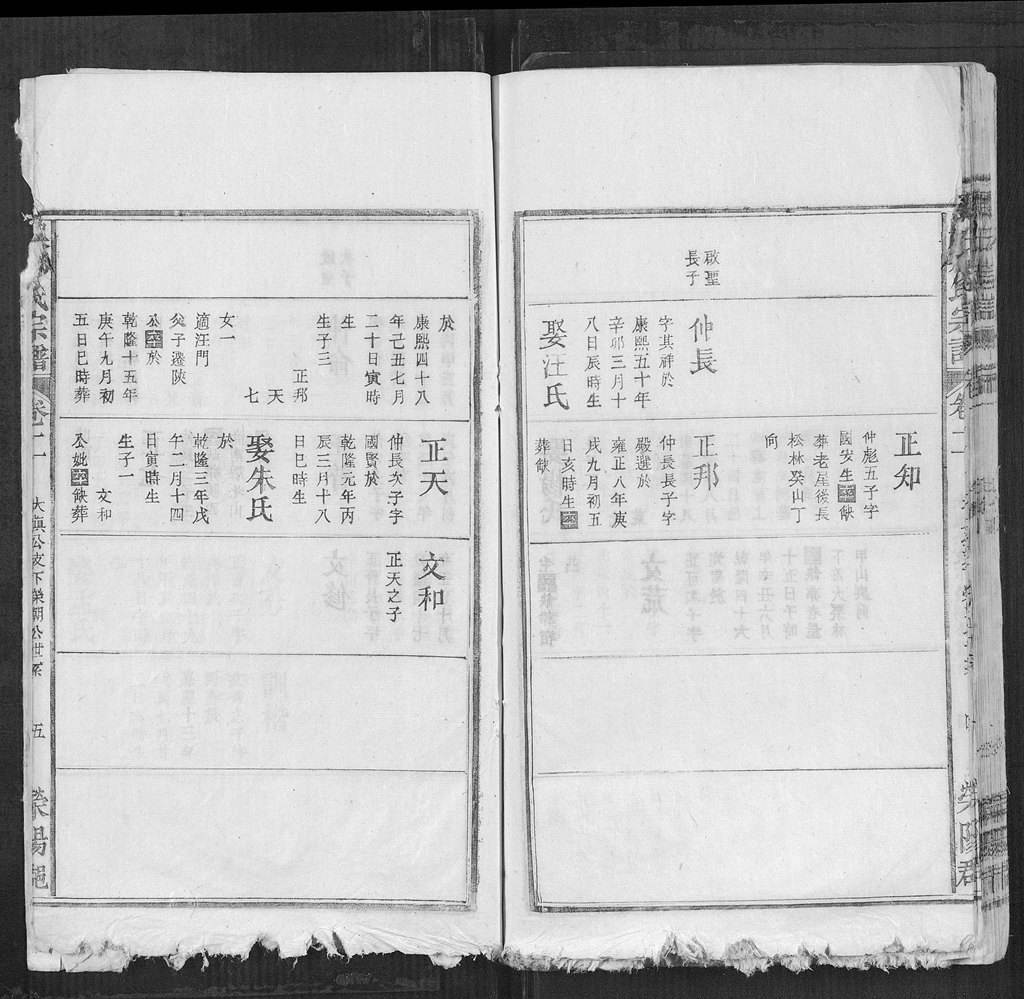 啟聖
長子
仲長
字其祥於
康熙五十年
辛卯三月十
八日辰時生
娶汪氏
正知
仲彪五子字
國安生卒缺
葬老屋後長
松林癸山丁
向
正邦
仲長長子字
殿選於
雍正八年庚
戌九月初五
日亥時生卒
葬缺
於
康熙四十八
年己丑七月
二十日寅時
生
生子三
正邦
天
七
女一
適汪門
父子遷陝
公卒於
乾隆十五年
庚午九月初
五日巳時葬
正天
仲長次子字
國賢於
乾隆元年丙
辰三月十八
日巳時生
娶朱氏
於
乾隆三年戊
午二月十四
日寅時生
生子一
文和
公妣卒缺葬
文和
正天之子
氏宗譜
卷十一
公支下榮朝公世系
五